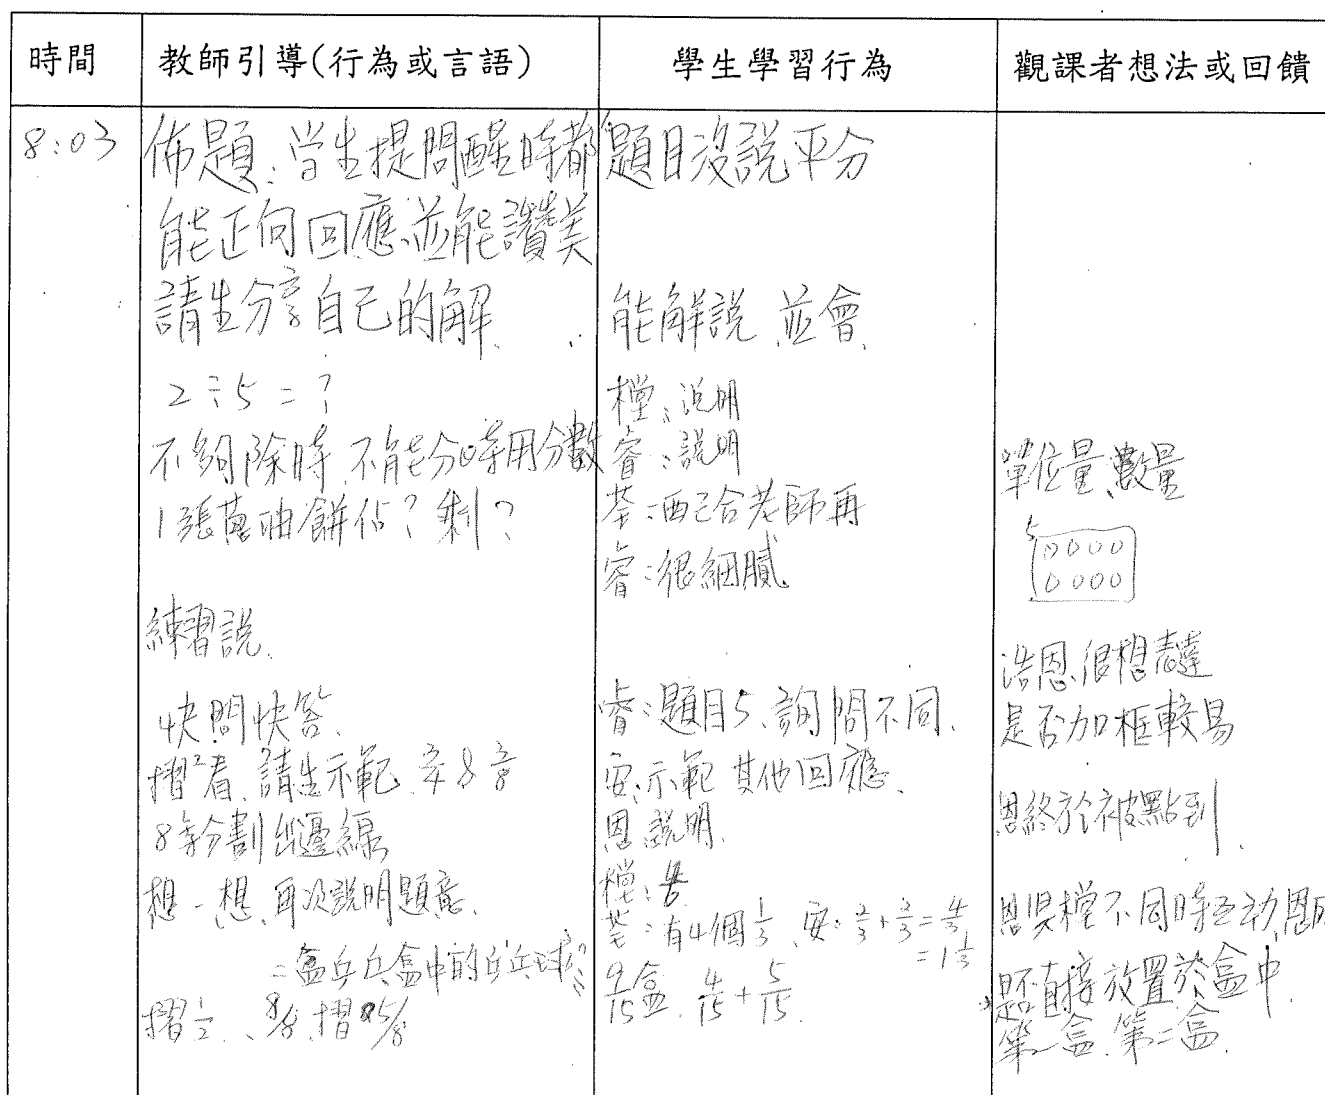 時間
教師引導(行為或言語)
學生學習行為
觀課者想法或回饋
8:03
佈題:當生提問醒時都
能正向回應、並能讚美
請生分享自己的解.
2÷5=?
不夠除時,不能分時用分數
1張蔥油餅佔?剩?
練習說.
快問快答.
摺²看.請生示範.
8等分割出邊線
想一想.再次說明題意.
二盒乒乓盒中的乒乓球
摺½、8/8.摺5/8
題目沒說平分
能解說 並會.
樘:說明
睿:說明
荃:配合老師再
睿:很細膩
睿:題目5.詢問不同.
安:示範 其他回應.
恩:說明.
樘:
荃:有4個1/3.安:2/3+2/3=4/3
=1 1/3
9/15盒.4/15+5/15.
單位量、數量
5
0000
0000
浩恩.很想表達
是否加框較易
恩終於被點到.
恩與樘不同時互動,恩
是否直接放置於盒中.
第一盒.第二盒.